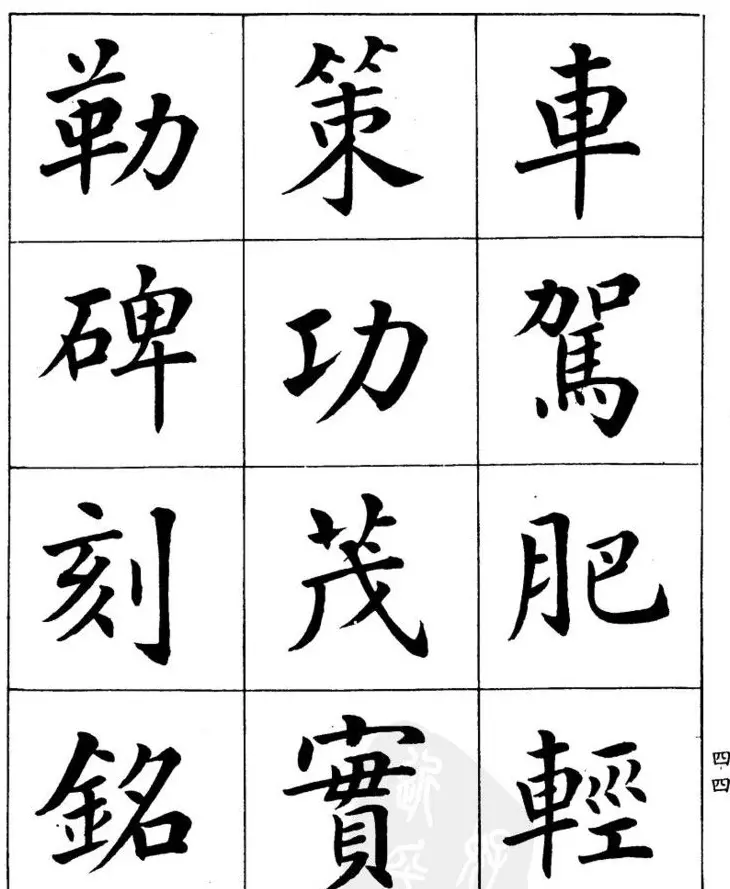 車駕肥輕
策功茂實
勒碑刻銘
四四